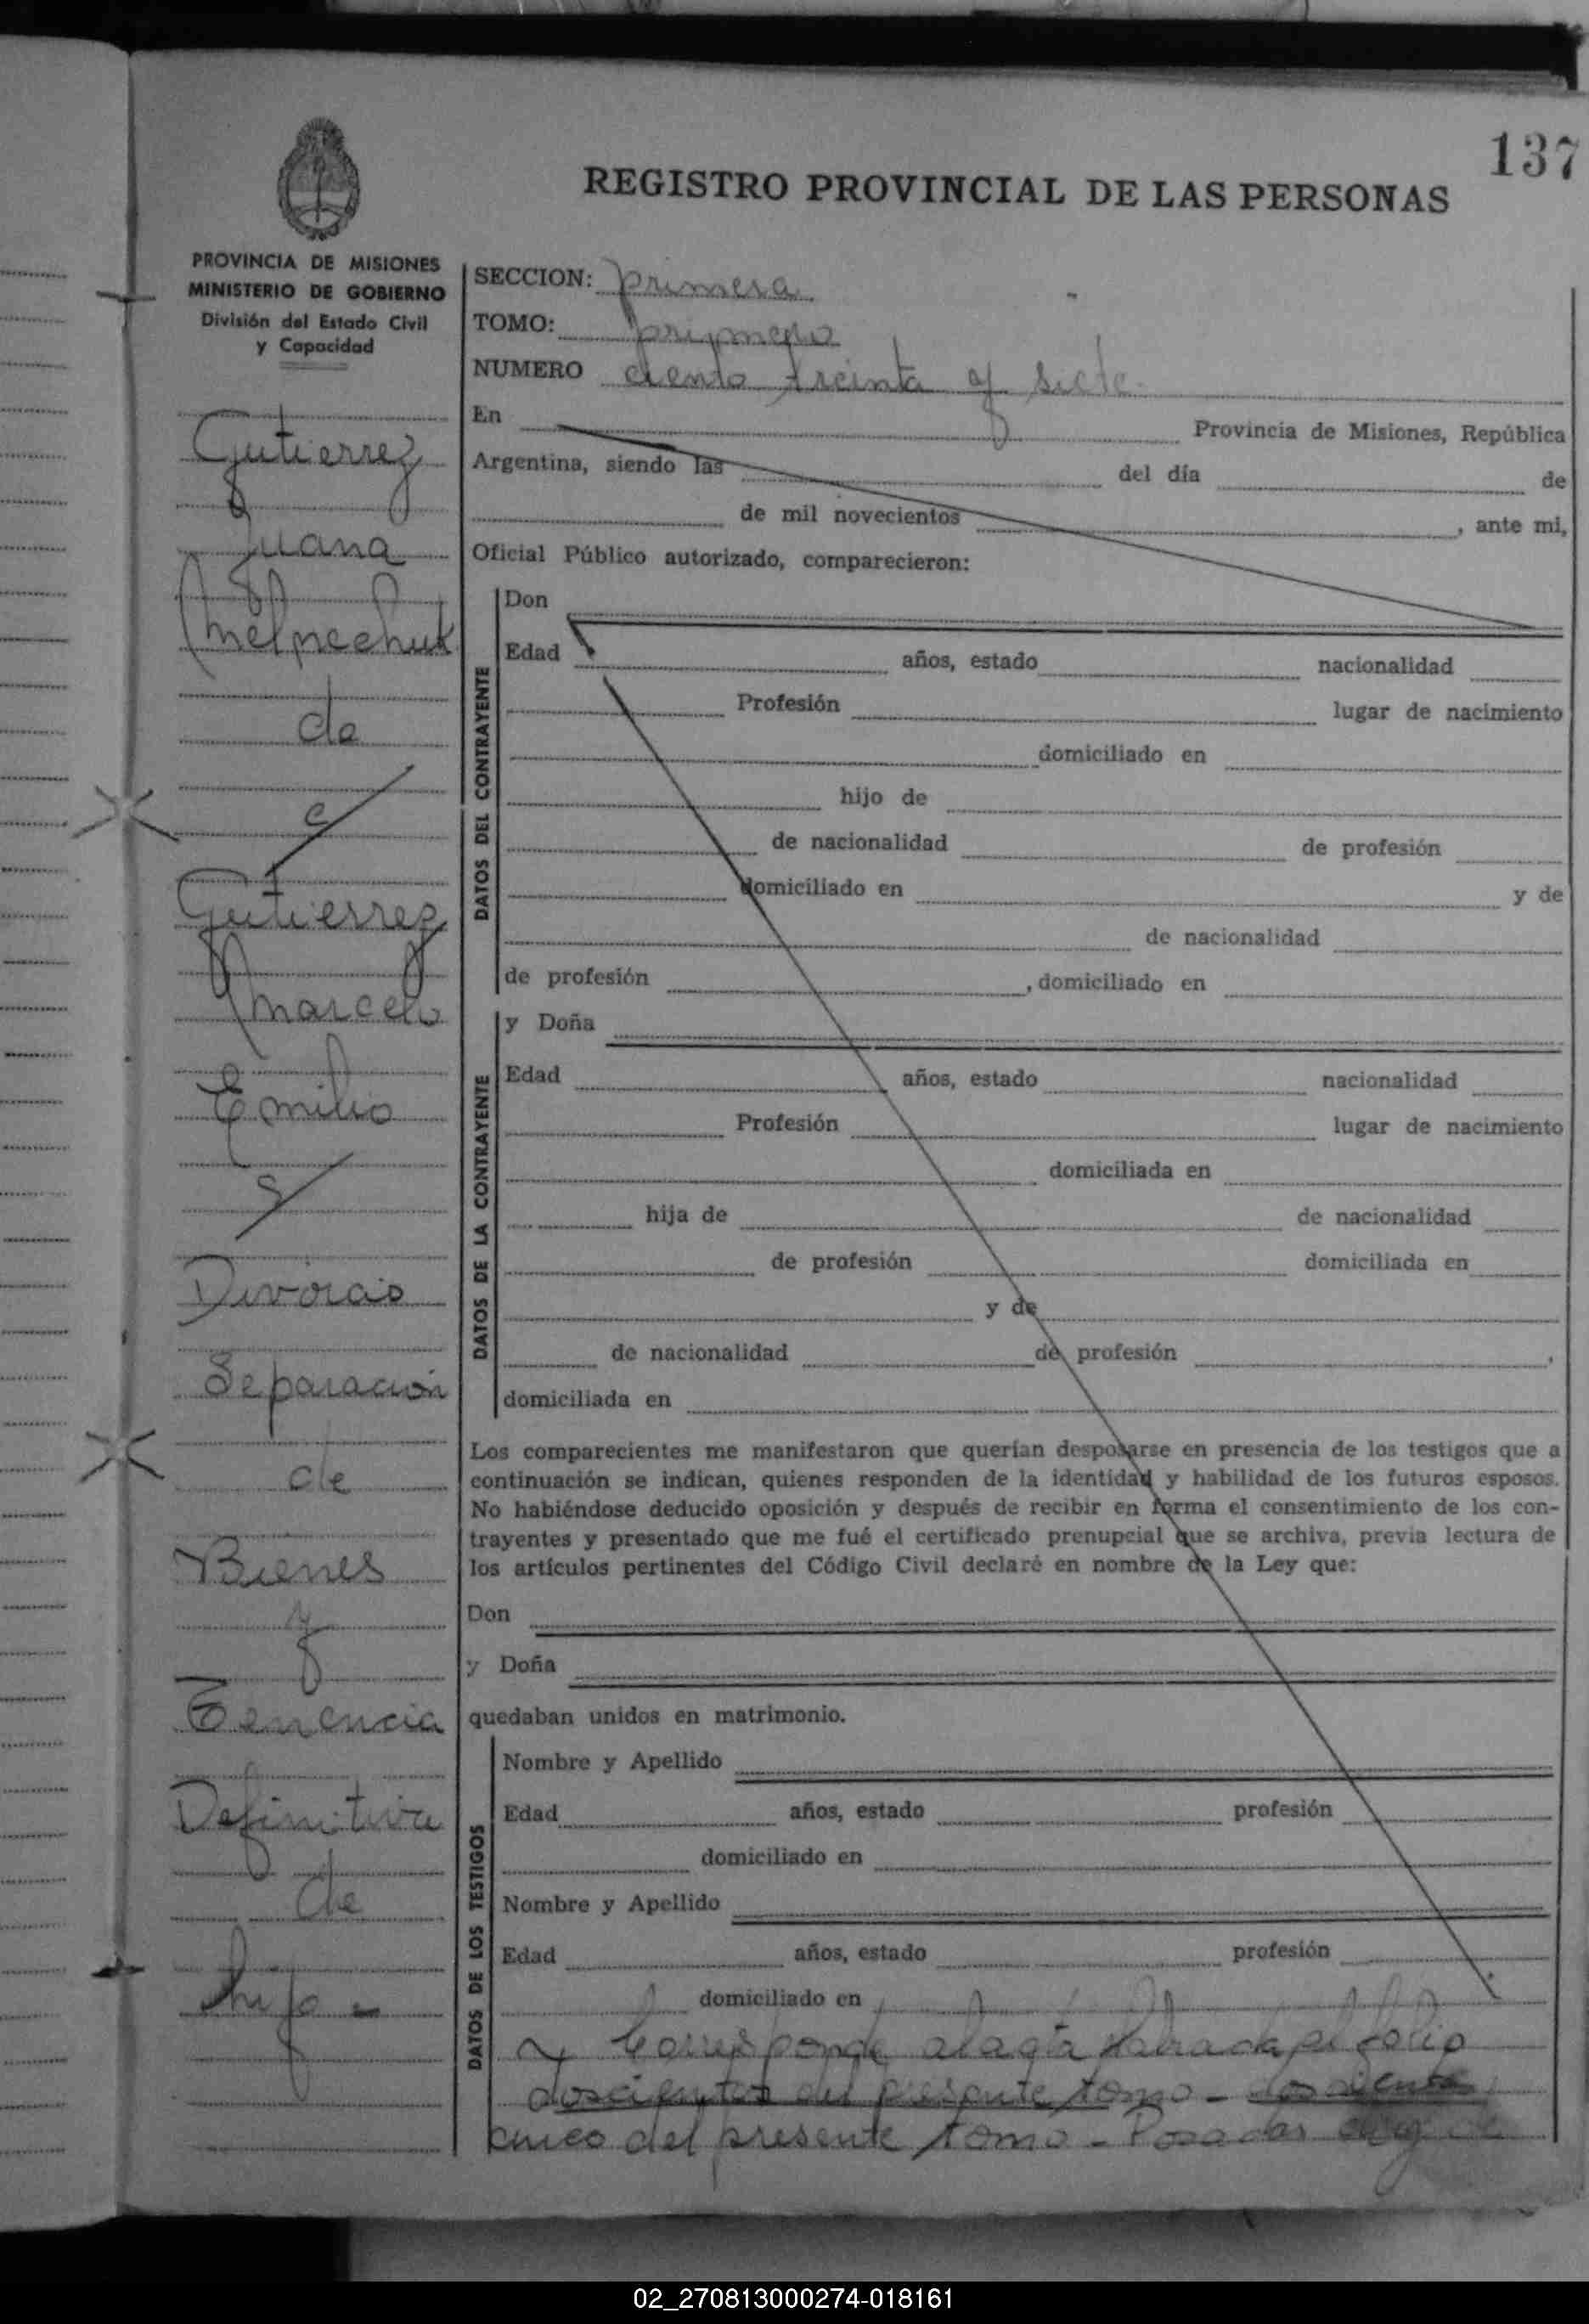 137
REGISTRO PROVINCIAL DE LAS PERSONAS
PROVINCIA DE MISIONES
MINISTERIO DE GOBIERNO
División del Estado Civil
y Capacidad
Gutierrez
Juana
Melneechuk
de
c/
Gutierrez
Marcelo
Emilio
s/
Divorcio
Separación
de
Bienes
y
Tenencia
Definitiva
de
hijo -
SECCION: primera
TOMO: primero
NUMERO ciento treinta y siete
En Provincia de Misiones, República
Argentina, siendo las del día de
de mil novecientos , ante mi,
Oficial Público autorizado, comparecieron:
DATOS DEL CONTRAYENTE
Don
Edad años, estado nacionalidad
Profesión lugar de nacimiento
domiciliado en
hijo de
de nacionalidad de profesión
domiciliado en y de
de nacionalidad
de profesión , domiciliado en
DATOS DE LA CONTRAYENTE
y Doña
Edad años, estado nacionalidad
Profesión lugar de nacimiento
domiciliada en
hija de de nacionalidad
de profesión domiciliada en
y de
de nacionalidad de profesión ,
domiciliada en
Los comparecientes me manifestaron que querían desposarse en presencia de los testigos que a
continuación se indican, quienes responden de la identidad y habilidad de los futuros esposos.
No habiéndose deducido oposición y después de recibir en forma el consentimiento de los con-
trayentes y presentado que me fué el certificado prenupcial que se archiva, previa lectura de
los artículos pertinentes del Código Civil declaré en nombre de la Ley que:
Don
y Doña
quedaban unidos en matrimonio.
DATOS DE LOS TESTIGOS
Nombre y Apellido
Edad años, estado profesión
domiciliado en
Nombre y Apellido
Edad años, estado profesión
domiciliado en
Corresponde al acta labrada al folio
doscientos del presente tomo - doscientos
cinco del presente tomo - Posadas
02_270813000274-018161